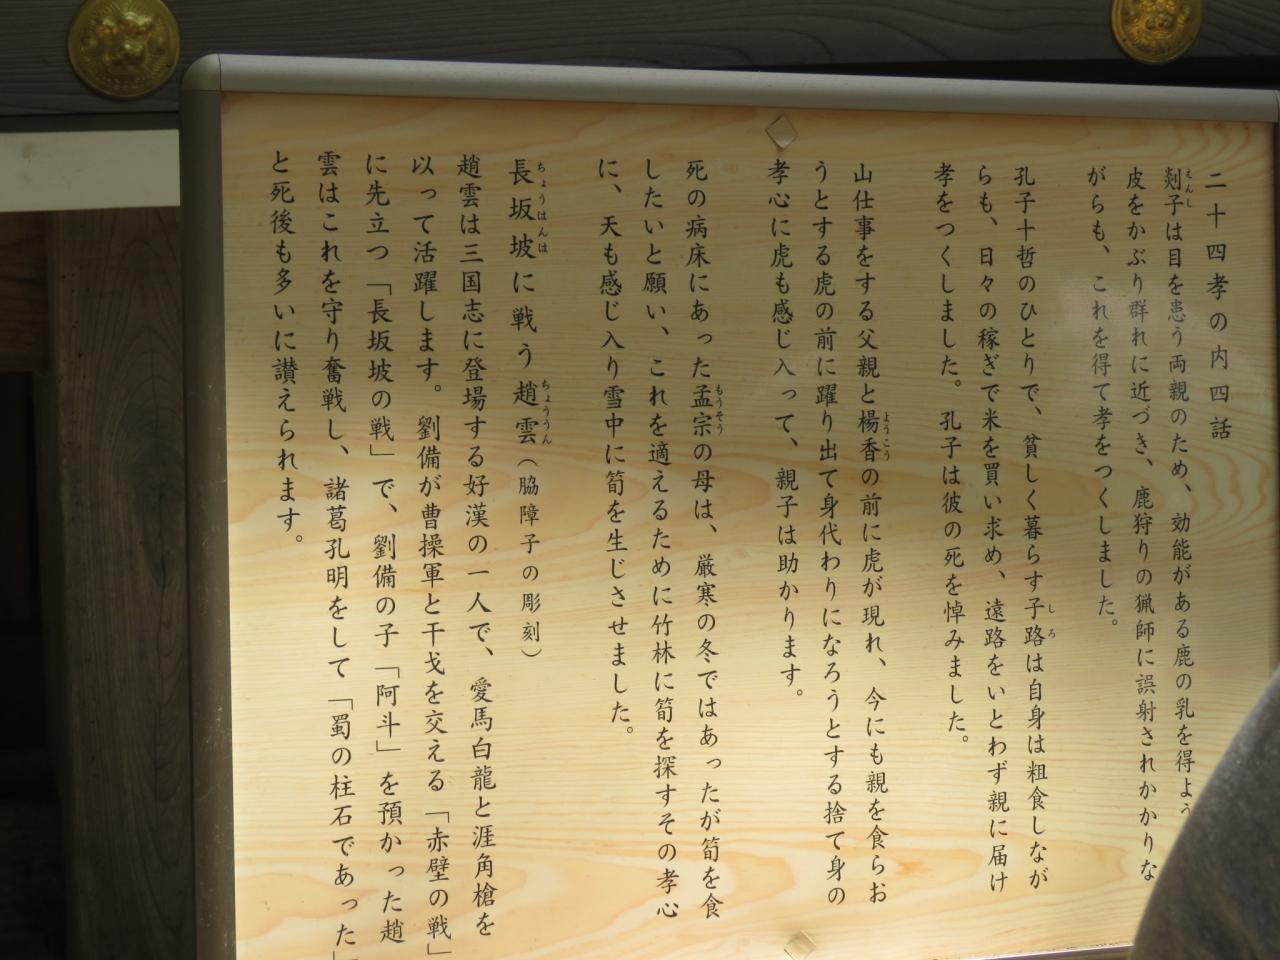 二十四孝の内四話
剡子は目を患う両親のため、効能がある鹿の乳を得よう
皮をかぶり群れに近づき、鹿狩りの猟師に誤射されかかりな
がらも、これを得て孝をつくしました。
孔子十哲のひとりで、貧しく暮らす子路は自身は粗食しなが
らも、日々の稼ぎで米を買い求め、遠路をいとわず親に届け
孝をつくしました。孔子は彼の死を悼みました。
山仕事をする父親と楊香の前に虎が現れ、今にも親を食らお
うとする虎の前に躍り出て身代わりになろうとする捨て身の
孝心に虎も感じ入って、親子は助かります。
死の病床にあった孟宗の母は、厳寒の冬ではあったが筍を食
したいと願い、これを適えるために竹林に筍を探すその孝心
に、天も感じ入り雪中に筍を生じさせました。
長坂坡に戦う趙雲（脇障子の彫刻）
趙雲は三国志に登場する好漢の一人で、愛馬白龍と涯角槍を
以って活躍します。劉備が曹操軍と干戈を交える「赤壁の戦」
に先立つ「長坂坡の戦」で、劉備の子「阿斗」を預かった趙
雲はこれを守り奮戦し、諸葛孔明をして「蜀の柱石であった」
と死後も多いに讃えられます。